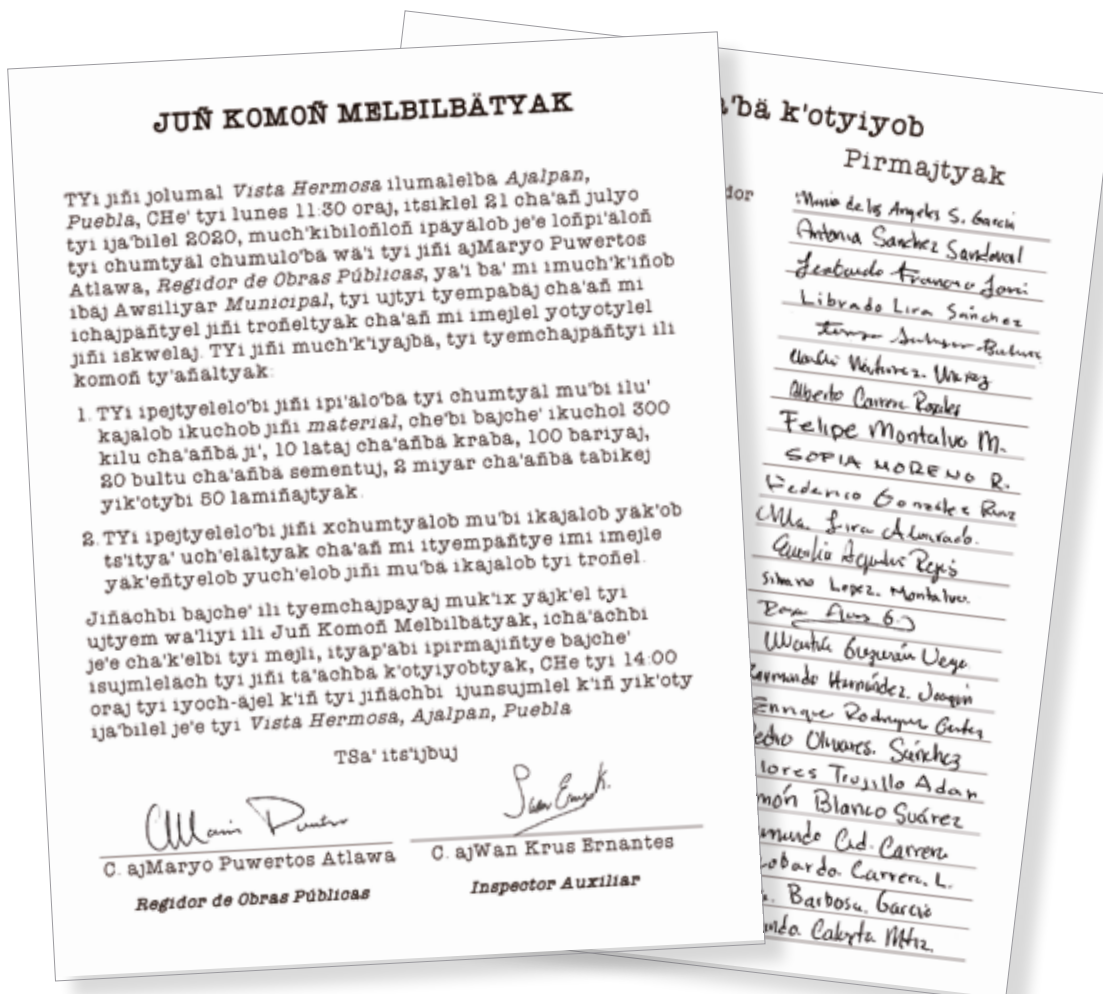 JUÑ KOMOÑ MELBILBÄTYAK
TYi jiñi jolumal Vista Hermosa ilumalelbä Ajalpan,
Puebla, CHe' tyi lunes 11:30 oraj, itsiklel 21 cha'añ julyo
tyi ija'bilel 2020, much'kibiloñloñ ipäyälob je'e loñpi'äloñ
tyi chumtyäl chumulo'bä wä'i tyi jiñi ajMaryo Puwertos
Atlawa, Regidor de Obras Públicas, ya'i ba' mi imuch'k'iñob
ibäj Awsiliyar Municipal, tyi ujtyi tyempabäj cha'añ mi
ichajpäñtyel jiñi troñeltyak cha'añ mi imejlel yotyotylel
jiñi iskwelaj. TYi jiñi much'k'iyajbä, tyi tyemchajpäñtyi ili
komoñ ty'añältyak:
1. TYi ipejtyelelo'bi jiñi ipi'älo'bä tyi chumtyäl mu'bi ilu'
kajalob ikuchob jiñi material, che'bi bajche' ikuchol 300
kilu cha'añbä ji', 10 lataj cha'añbä kraba, 100 bariyaj,
20 bultu cha'añbä sementuj, 2 miyar cha'añbä tabikej
yik'otybi 50 lamiñajtyak.
2. TYi ipejtyelelo'bi jiñi xchumtyälob mu'bi ikajalob yäk'ob
ts'itya' uch'elältyak cha'añ mi ityempäñtye imi imejle
yäk'eñtyelob yuch'elob jiñi mu'bä ikajalob tyi troñel.
Jiñächbi bajche' ili tyemchajpayaj muk'ix yäjk'el tyi
ujtyem wa'liyi ili Juñ Komoñ Melbilbätyak, icha'achbi
je'e cha'k'elbi tyi mejli, ityap'abi ipirmajiñtye bajche'
isujmlelach tyi jiñi ta'achbä k'otyiyobtyak, CHe tyi 14:00
oraj tyi iyoch-äjel k'iñ tyi jiñächbi ijunsujmlel k'iñ yik'oty
ija'bilel je'e tyi Vista Hermosa, Ajalpan, Puebla
TSa' its'ijbuj
C. ajMaryo Puwertos Atlawa
Regidor de Obras Públicas
C. ajWan Krus Ernantes
Inspector Auxiliar
a'bä k'otyiyob
Pirmajtyak
dor
María de los Angeles S. García
Antonia Sanchez Sandoval
Librado Lira Sánchez
Alberto Carrera Rosales
Felipe Montalvo M.
SOFIA MORENO R.
Federico González Ruiz
Ma. Lira Alvarado.
Silvano Lopez. Montalvo.
Hernández. Joaquín
Enrique Rodríguez
Olivares. Sánchez
lores Trujillo Adan
món Blanco Suárez
Cid. Carrera
Carrera. L.
Barbosa. García
Mtiz.